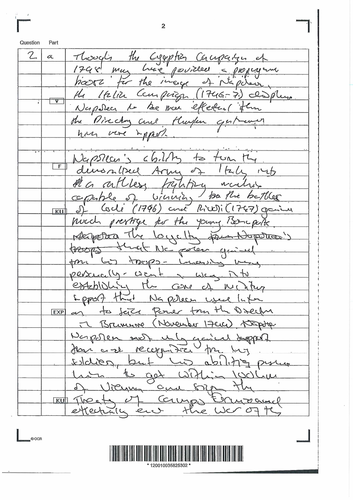 2
Question Part
2 a Though the Egyptian Campaign of
1798 may have provided a propaganda
boost for the image of Napoleon,
the Italian Campaign (1796-7)
Napoleon to be more effective than
the Directory and therefore
him more support.
Napoleon's ability to turn the
demoralised Army of Italy into
a ruthless fighting machine
capable of winning the battles
of Lodi (1796) and Rivoli (1797) gained
much prestige for the young Bonaparte.
The loyalty
that Napoleon gained
from his troops - knowing many
personally - went a way into
establishing the core of military
support that Napoleon used later
EXP on to seize Power from the Directory
in Brumaire (November 1799)
Napoleon not only gained support
from and recognition from his
soldiers, but his abilities
him to get within 100km
of Vienna and sign the
Treaty of Campo Formio and
effectively end the War of the